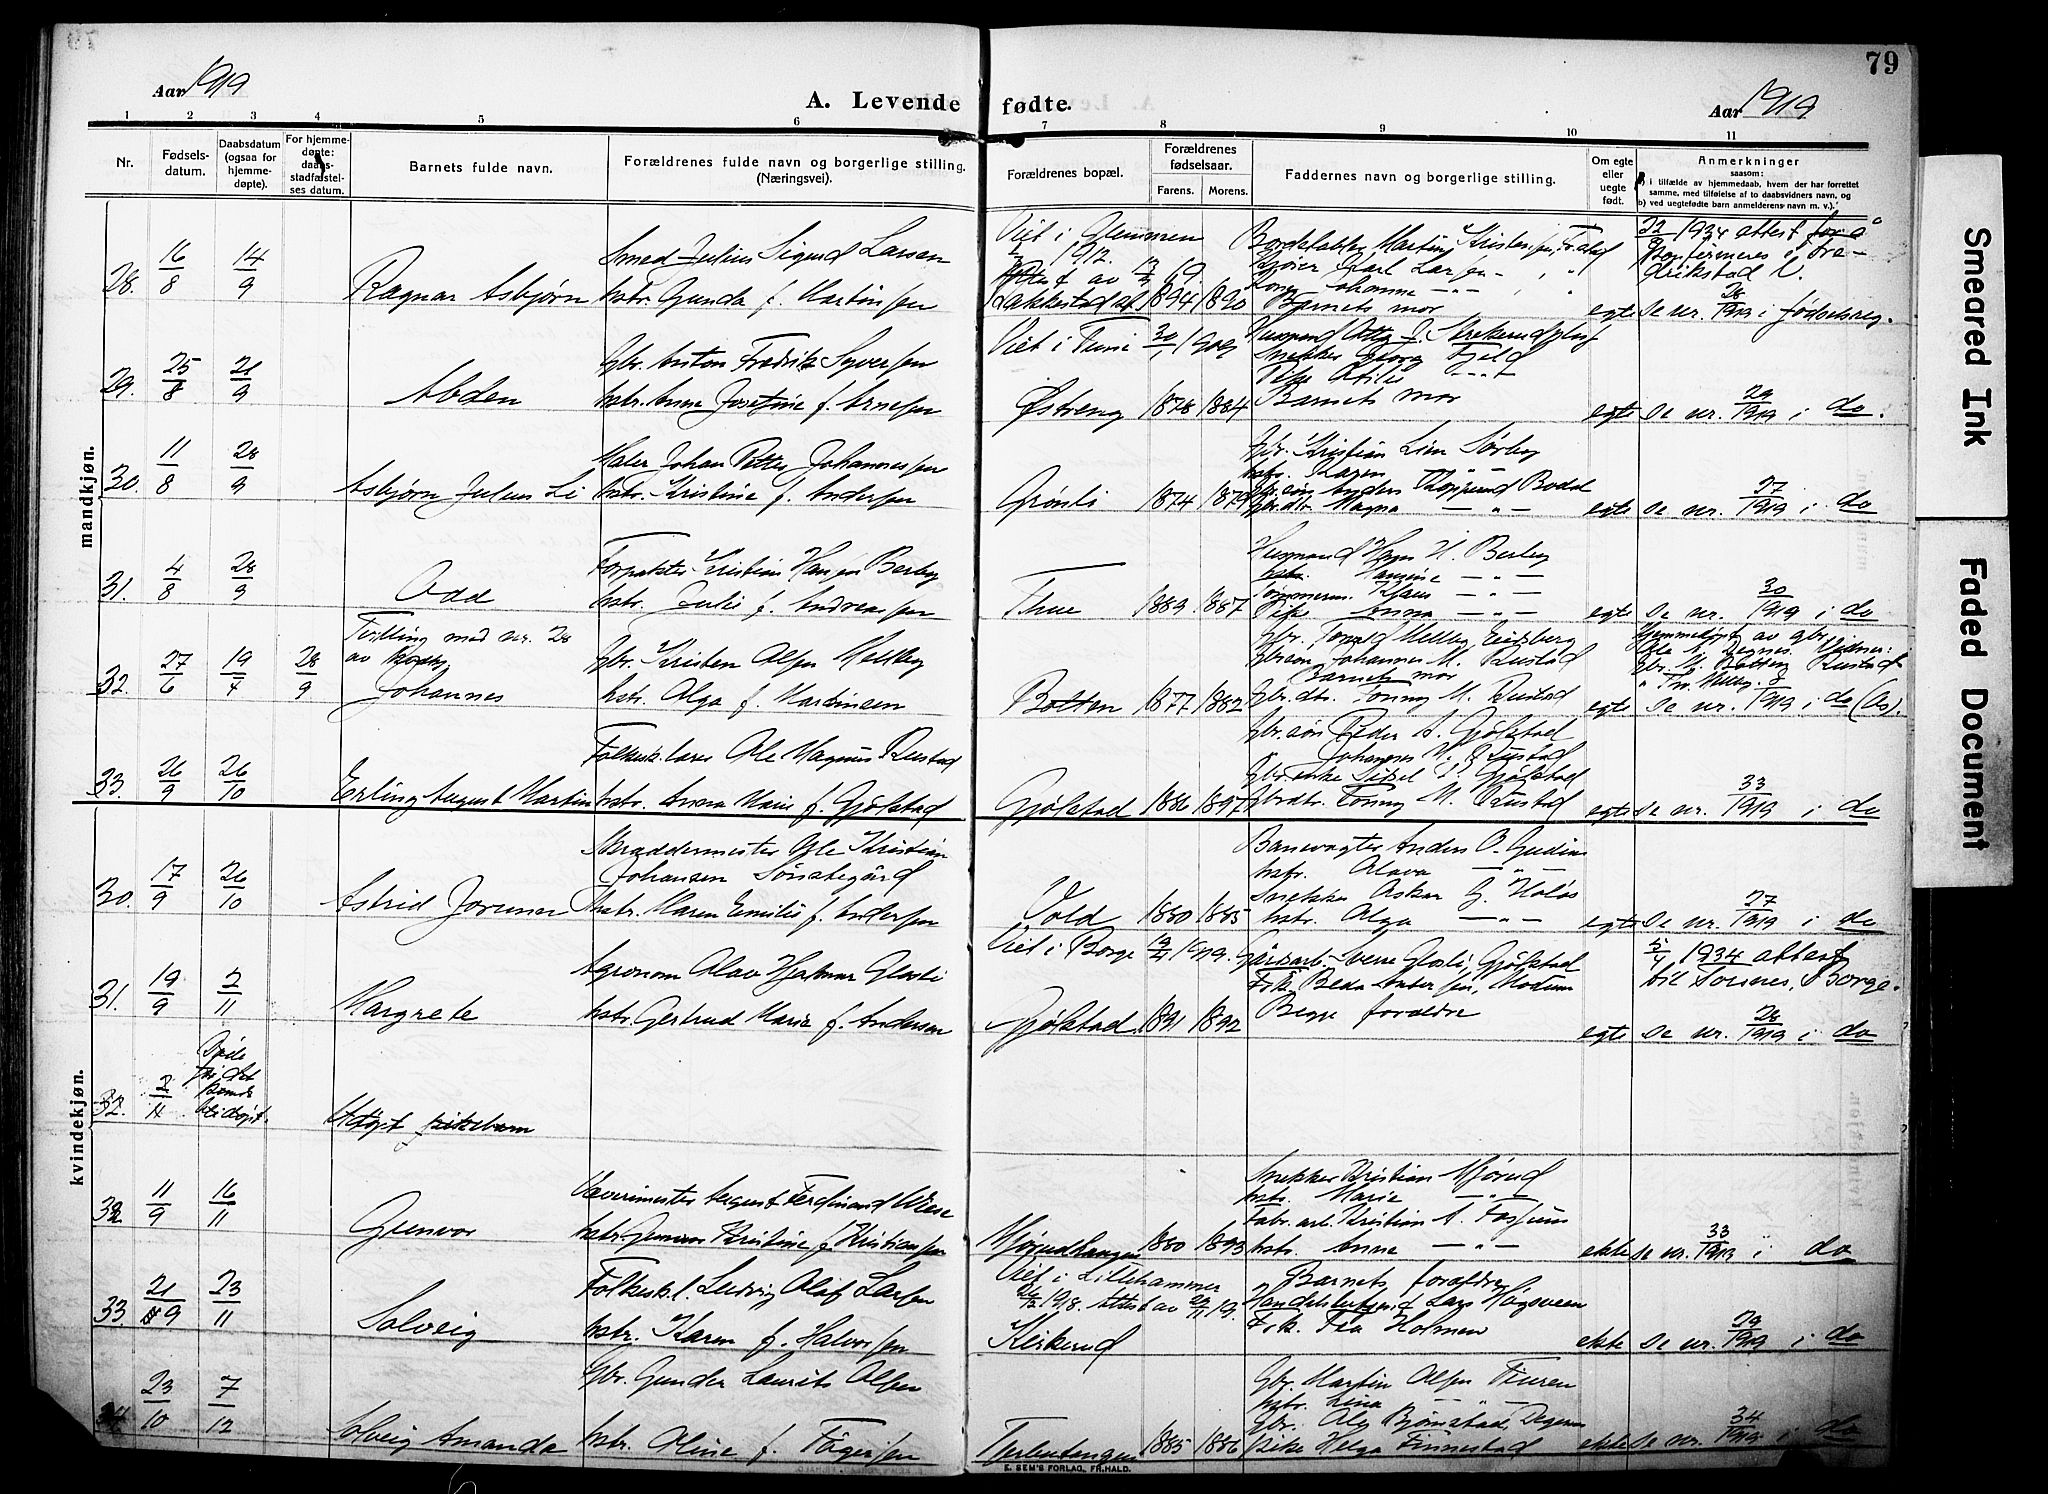 79
Aar 1919
A. Levende fødte.
Aar 1919
1 2 3 4 5 6 7 8 9 10 11
Nr.
Fødsels-
datum.
Daabsdatum
(ogsaa for
hjemme-
døpte).
For hjemme-
døpte:
daabs-
stadfæstel-
ses datum.
Barnets fulde navn.
Forældrenes fulde navn og borgerlige stilling.
(Næringsvei).
Forældrenes bopæl.
Forældrenes
fødselsaar.
Farens. Morens.
Faddernes navn og borgerlige stilling.
Om egte
eller
uegte
født.
Anmerkninger
saasom:
a) i tilfælde av hjemmedaab, hvem der har forrettet
samme, med tilføielse af to daabsvidners navn, og
b) ved uegtefødte barn anmelderens navn m. v.).
mandkjøn.
28. 16/8 14/9 Ragnar Asbjørn
Smed Julius Sigurd Larsen
hstr. Gunda f. Martinsen
Viet i
1912.
1894 1890
Barnets mor
egte
1934 attest
Se nr. 28/1919 i fødselsreg.
29. 25/8 21/9
Gbr. Anton Fredrik Syversen
hstr. Anna Josefine f. Arnesen
Viet i Tune 30/1 1909
Østreng 1878 1884
Snekker Georg
Barnets mor
egte Se nr. 29/1919 i do.
30. 11/8 28/9 Asbjørn Julius Li
Maler Johan Petter Johannessen
hstr. Kristine f. Andersen
Grønli 1874 1879
Gbr. Kristian Lien Sørby
hstr. Karen
Gbr.dtr. Magna — „ —
egte Se nr. 27/1919 i do
31. 4/8 28/9 Odd
Forpakter Kristian Hansen Berby
hstr. Julie f. Andreassen
Thue 1889 1887
Husmand Hans H. Berby
hstr. Hansine — „ —
Pike Anna — „ —
egte Se nr. 30/1919 i do
Tvilling med nr. 28
32. 27/6 19/7 28/9 Johannes
Gbr. Kristen Olsen Melleby
hstr. Olga f. Martinsen
Botten 1877 1882
Gbr. Melleby Eidsberg
Gbr.søn Johannes M. Rustad
Barnets mor
Gbr.dtr. Fanny M. Rustad
egte
Hjemmedøpt av gbr.
Ole A. Degnes. Vidner:
Gbr. M. Botten Rustad
Se nr. 8/1919 i do
33. 26/9 26/10 Erling August Martin
Folkesk.lærer Ole Magnus Rustad
hstr. Anna Marie f. Gjølstad
Gjølstad 1886 1897
Gbr.søn Peder A. Gjølstad
Johannes M. Rustad
Gbr.enke Sidsel P. Gjølstad
Gbr.dtr. Fanny M. Rustad
egte Se nr. 33/1919 i do
kvindekjøn.
30. 17/9 26/10 Astrid Jorunn
Skræddermester Ole Kristian
Johansen Sønstegård
hstr. Maren Emilie f. Andersen
Vold 1880 1885
Banevogter Anders O. Gudim
hstr. Olava — „ —
Snekker Oskar G. Holøs
hstr. Olga — „ —
egte Se nr. 27/1919 i do
31. 19/9 2/11 Margrete
Agronom Olav Hjalmar Glosli
hstr. Gertrud Marie f. Andersen
Viet i Borge 1919.
Gjølstad 1891 1892
Gårdsarb. Sverre Glosli, Gjølstad
Frk. Beda Andersen, Modum
Begge forældre
egte
5/4 1934 attest
til Torsnes, Borge.
Se nr. 28/1919 i do
32. 2/11 Døde før det kunde bli døpt.
Udøpt pikebarn
32. 11/9 16/11 Gunvor
Vævermester August Ferdinand Wiese
hstr. Gunda Kristine f. Kristiansen
Mjørudhaugen 1880 1893
Snekker Kristian Mjørud
hstr. Marie — „ —
Fabr.arb. Kristian A. Fossum
hstr. Anna — „ —
ekte Se nr. 33/1919 i do
33. 21/9 23/11 Solveig
Folkesk.l. Ludvig Olaf Larsen
hstr. Karen f. Halvorsen
Viet i Lillehammer
Kirkerud
Barnets forældre
Handelsbetjent Lars Høgsveen
Frk. Fea Holmen
ekte Se nr. 29/1919 i do
34. 23/10 7/12 Solveig Amanda
Gbr. Gunder Laurits Olsen
hstr. Oline f. Tørgersen
1885 1886
Gbr. Martin Olsen Turen
hstr. Lina — „ —
Gbr. Ole Bjørnstad, Degernes
pike Helga Finnestad
ekte Se nr. 34/1919 i do
E. SEM'S FORLAG, FR.HALD.
Smeared Ink
Faded Document